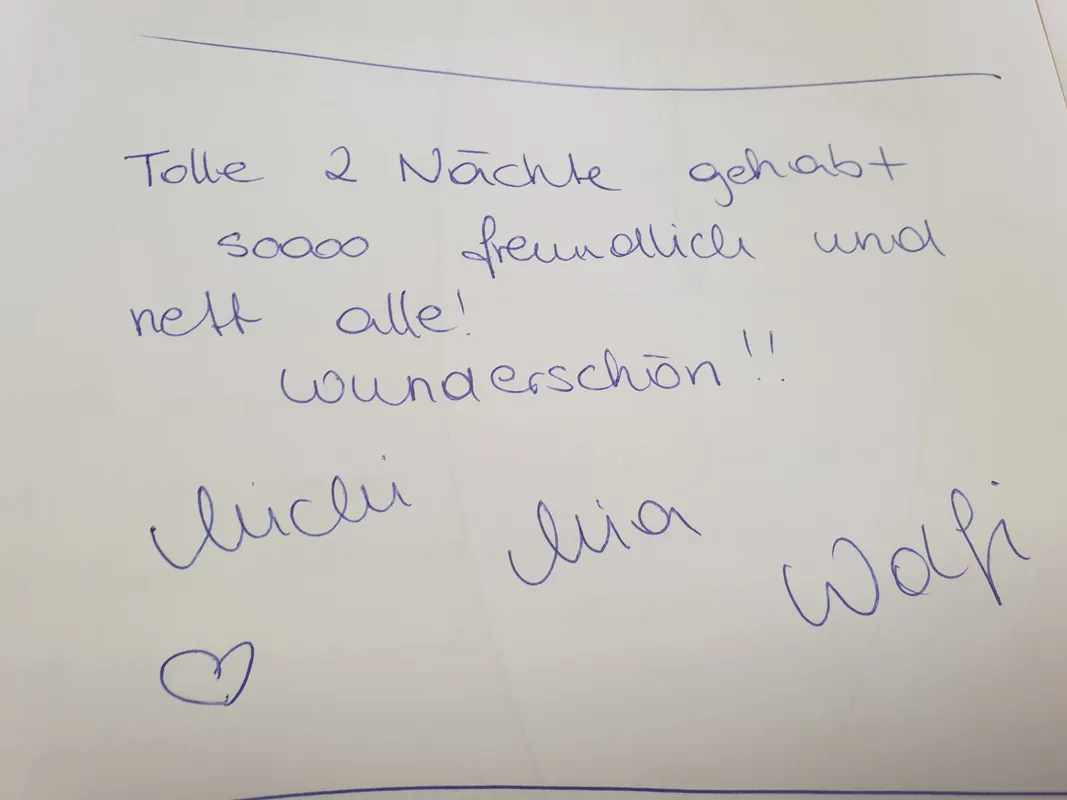 Tolle 2 Nächte gehabt
soooo freundlich und
nett alle!
wunderschön!!
Michi Mia Wolfi